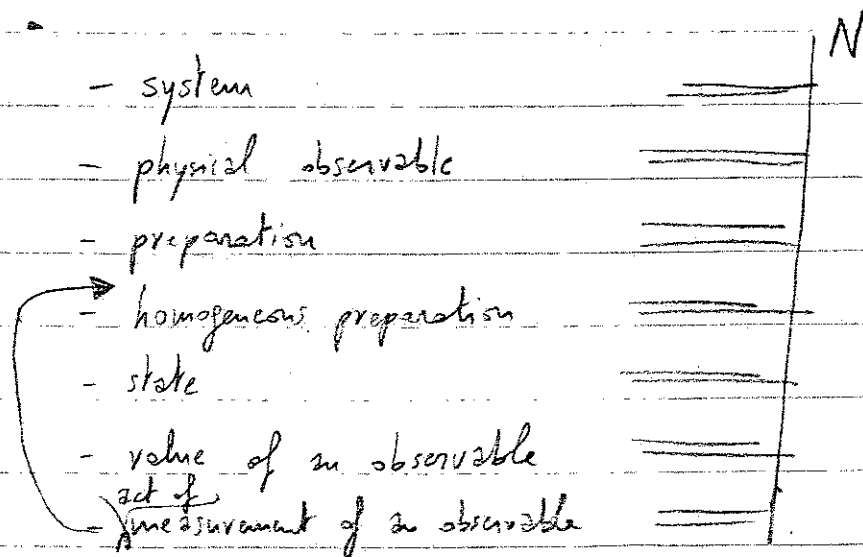 N
- system
- physical observable
- preparation
- homogeneous preparation
- state
- value of an observable
act of
- measurement of an observable